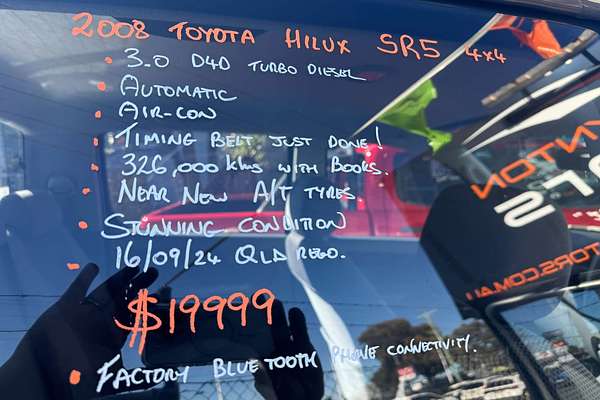 2008 TOYOTA HILUX SR5 4x4
• 3.0 D4D TURBO DIESEL
• AUTOMATIC
• AIR-CON
• TIMING BELT JUST DONE!
• 326,000 kms WITH BOOKS.
• NEAR NEW A/T TYRES.
• STUNNING CONDITION
• 16/09/24 QLD REGO.
$19999
• FACTORY BLUETOOTH PHONE CONNECTIVITY.